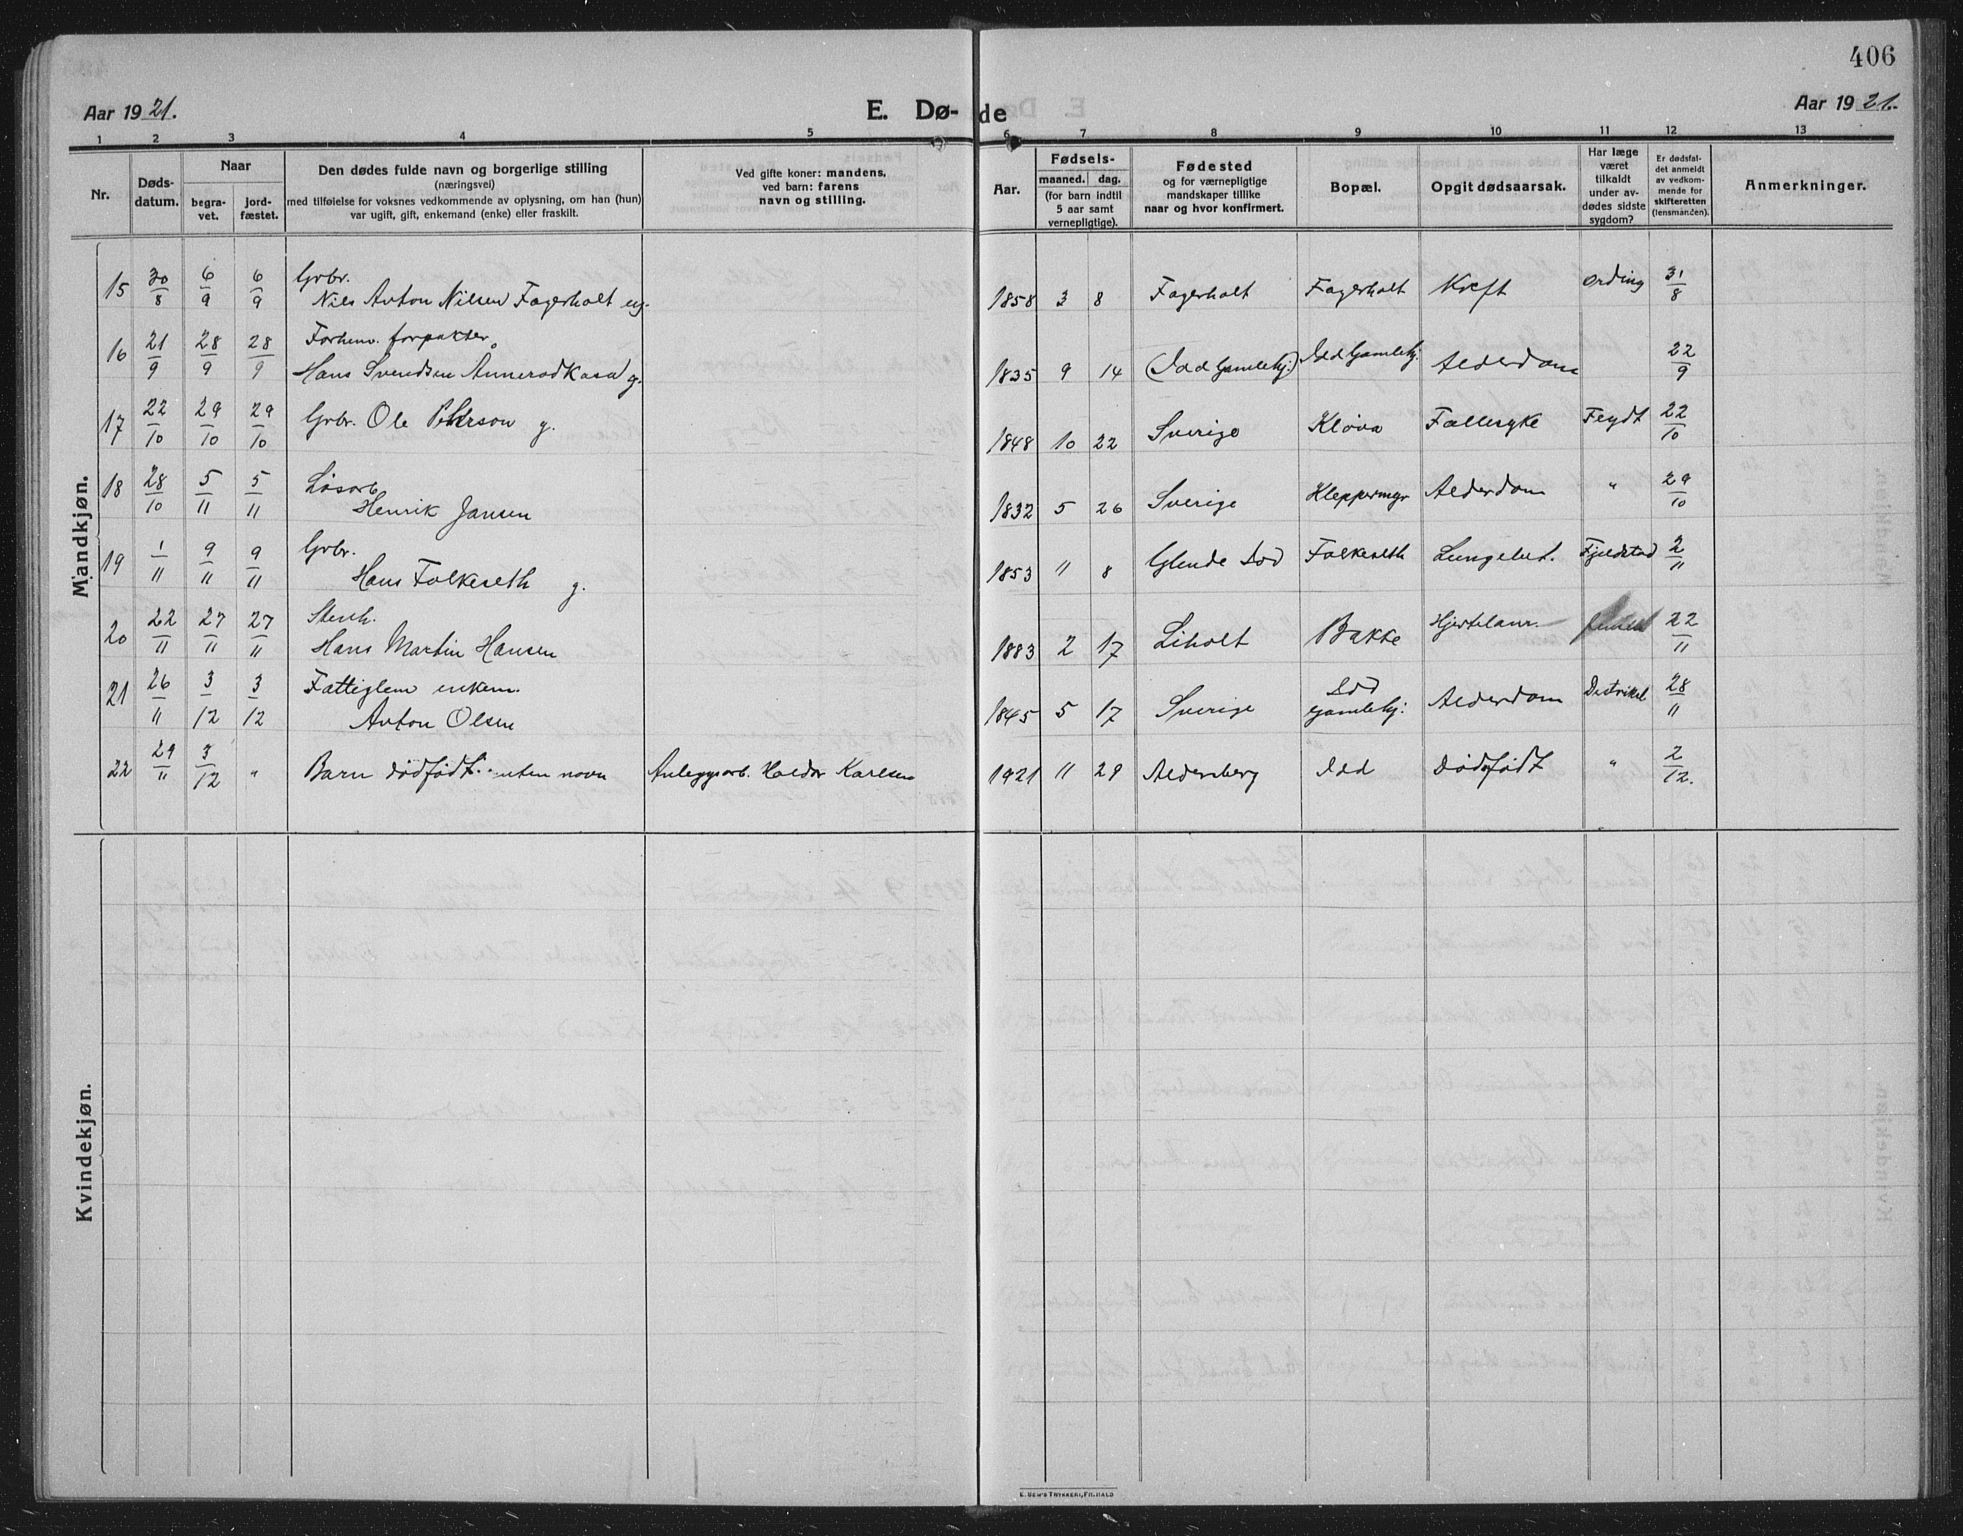 406
Aar 1921.
E. Dø-
de
Aar 1921.
1 2 3 4 5 6 7 8 9 10 11 12 13
Nr.
Døds-
datum.
Naar
begra-
vet.
jord-
fæstet.
Den dødes fulde navn og borgerlige stilling
(næringsvei)
med tilføielse for voksnes vedkommende av oplysning, om han (hun)
var ugift, gift, enkemand (enke) eller fraskilt.
Ved gifte koner: mandens,
ved barn: farens
navn og stilling.
Aar.
Fødsels-
maaned. dag.
(for barn indtil
5 aar samt
vernepligtige).
Fødested
og for værnepligtige
mandskaper tillike
naar og hvor konfirmert.
Bopæl.
Opgit dødsaarsak.
Har læge
været
tilkaldt
under av-
dødes sidste
sygdom?
Er dødsfal-
det anmeldt
av vedkom-
mende for
skifteretten
(lensmanden).
Anmerkninger.
Mandkjøn.
15 30/8 6/9 6/9 Grbr.
Nils Anton Nilsen Fagerholt ug. 1858 3 8 Fagerholt Fagerholt Kræft Ording 31/8
16 21/9 28/9 28/9 Forhenv. forpakter
Hans Svendsen Annerød Kasa g. 1835 9 14 (Idd Gamlehj.) Idd Gamlehj. Alderdom 22/9
17 22/10 29/10 29/10 Grbr. Ole Petterson g. 1848 10 22 Sverige Kløva Fallesyke Feydt 22/10
18 28/10 5/11 5/11 Løsarb.
Henrik Jansen 1832 5 26 Sverige Kleppermyr Alderdom " 29/10
19 1/11 9/11 9/11 Grbr.
Hans Folkeseth g. 1853 11 8 Glende Idd Folkeseth Lungebet. Fjeldstad 2/11
20 22/11 27/11 27/11 Stenh.
Hans Martin Hansen 1883 2 17 Liholt Bakke Hjertelam. 22/11
21 26/11 3/12 3/12 Fattiglem enkem.
Anton Olsen 1845 5 17 Sverige Idd
Gamlehj. Alderdom Distriktsl. 28/11
22 29/11 3/12 " Barn dødfødt. uten navn Anleggsarb. Haldor Karlsen 1921 11 29 Aldersberg Idd Dødsfødt " 2/12.
Kvindekjøn.
E. SEM'S TRYKKERI, FR.HALD